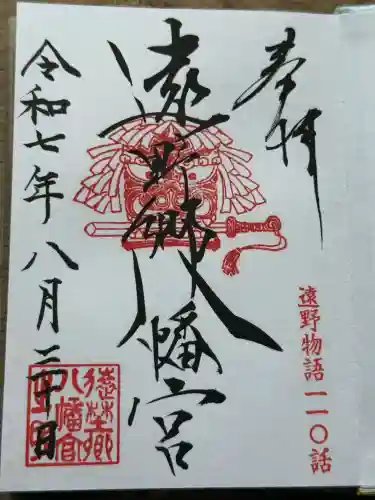 奉拝
遠野物語一一〇話
遠野郷八幡宮
令和七年八月三十日
遠野郷
八幡宮